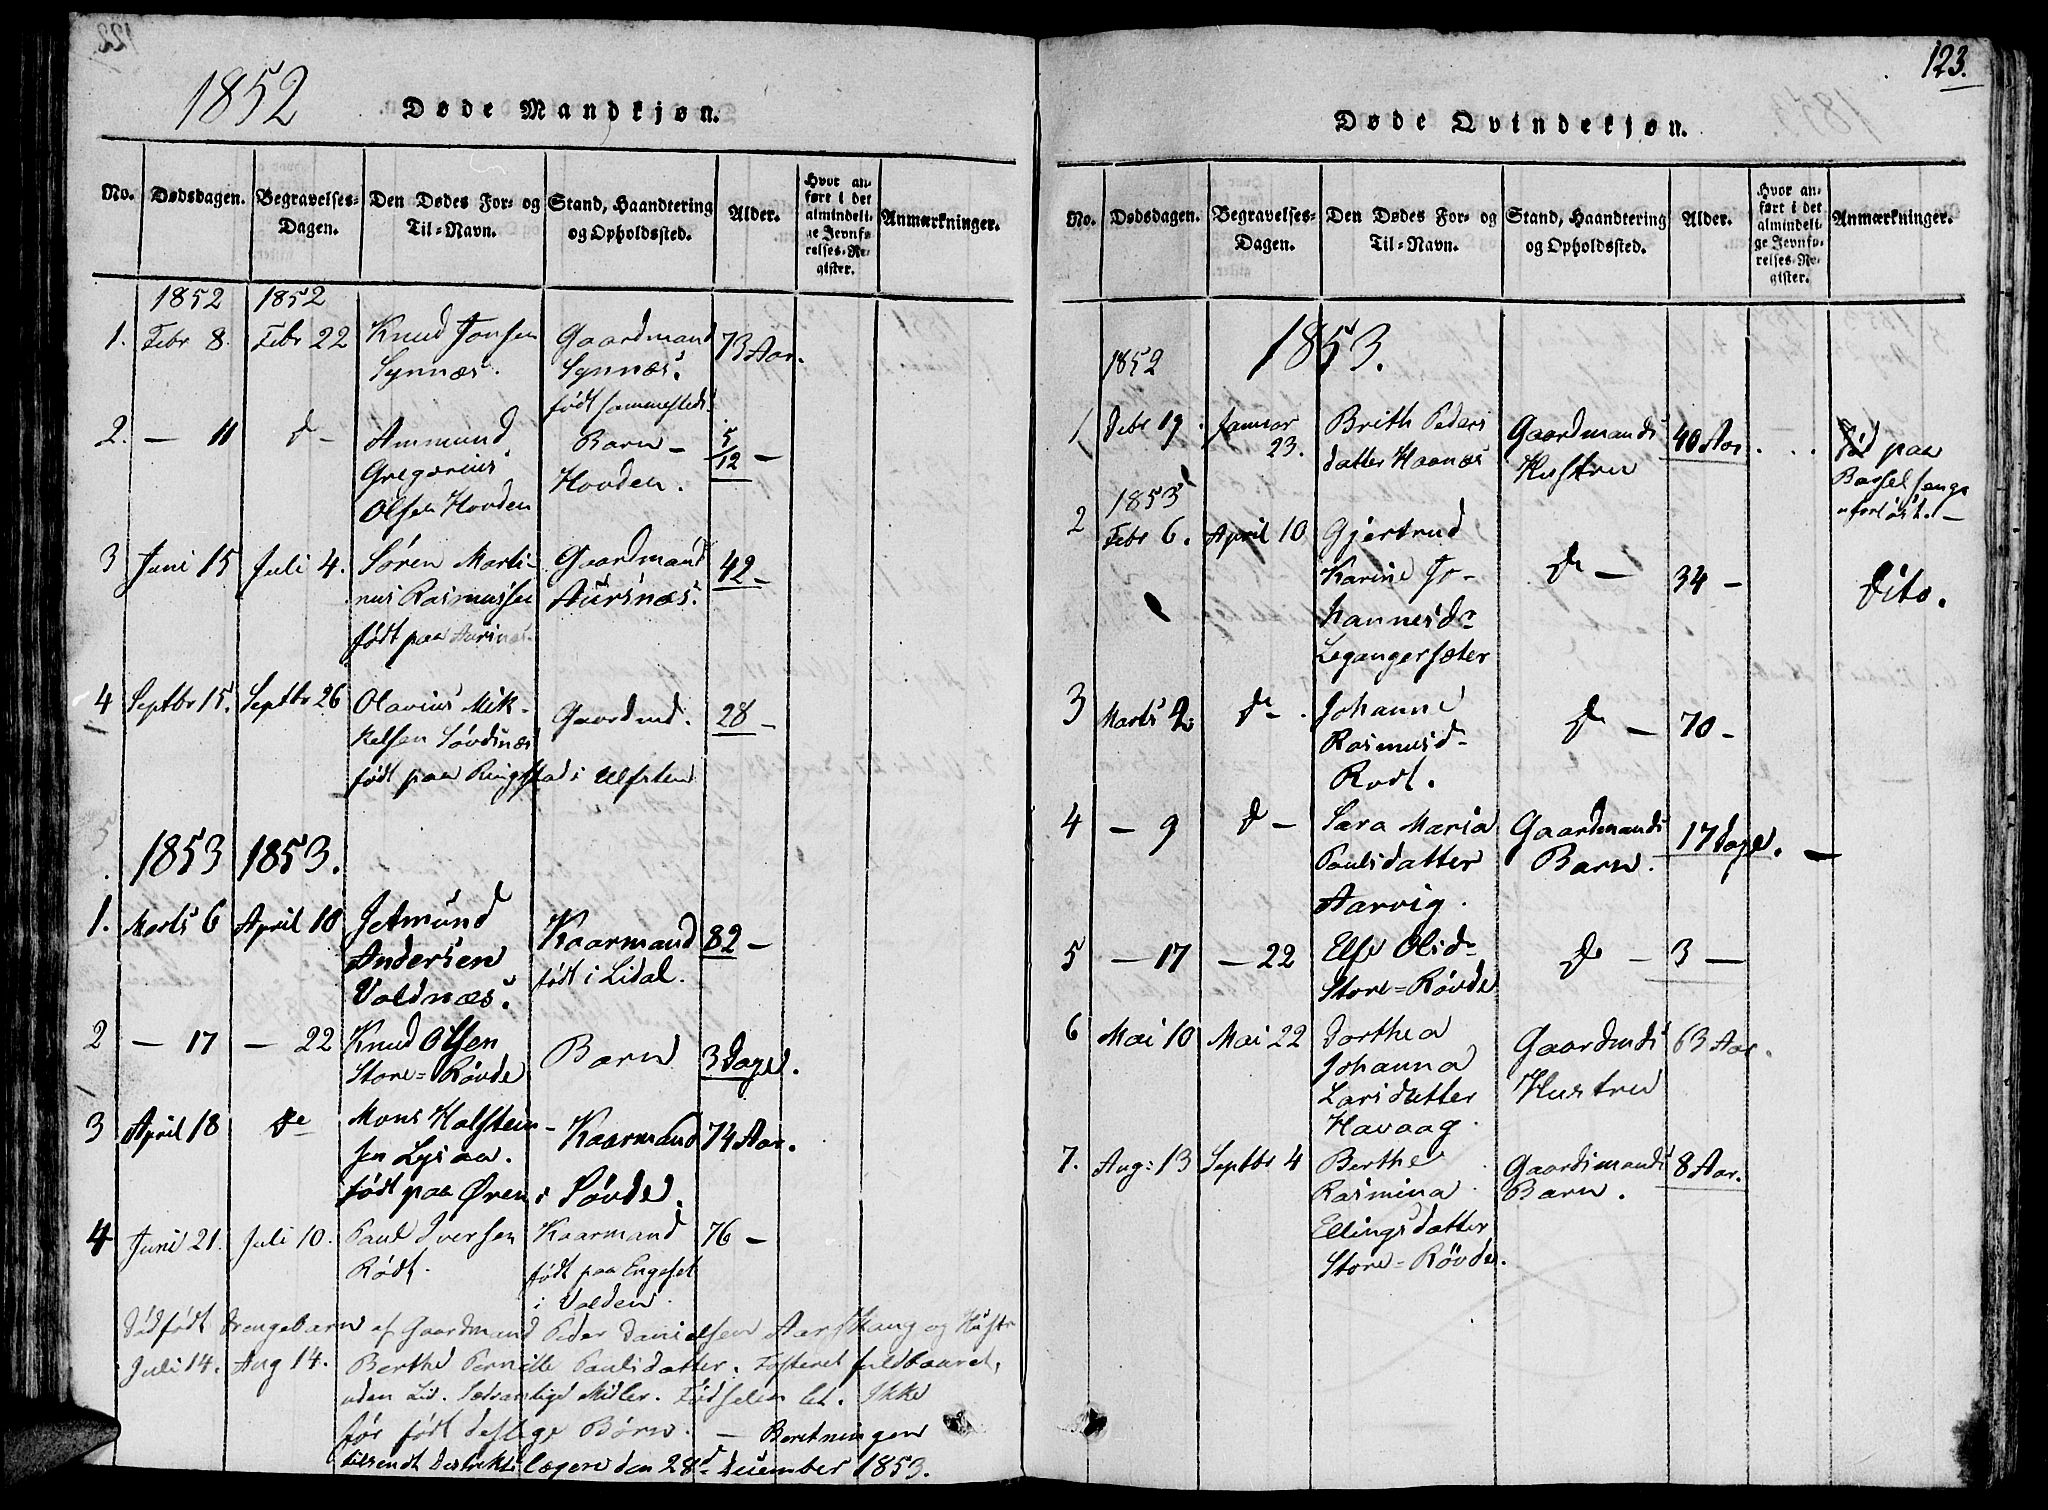 1852
Døde Mandkjøn.
No. Dødsdagen. Begravelses-Dagen. Den Dødes For- og Til-Navn. Stand, Haandtering og Opholdssted. Alder. Hvor anført i det almindelige Jevnførelses-Register. Anmærkninger.
1852 1852
1. Febr 8. Febr 22 Knud Jonsen Gaardmand 73 Aar.
Synnæs. Synnæs.
født sammesteds.
2. — 11 d— Ammund Barn — 5/12 —
Gregorius Hovden.
Olsen Hovden
3 Juni 15 Juli 4. Søren Marti- Gaardmand 42 —
nus Rasmussen Aursnæs.
født paa Aursnæs
4 Septbr 15. Septbr 26 Olavius Mik- Gaardmd. 28 —
kelsen Søvdsnæs
født paa Ringstad i Ulfsten
1853 1853.
1. Marts 6 April 10 Jetmund Kaarmand 82 —
Andersen født i Lidal.
Voldnæs.
2 — 17 — 22 Knud Olsen Barn 3 Dage.
Store=Røvde
3 April 18 de Mons Holstein- Kaarmand 74 Aar.
sen Lysaa.
født paa Øren i Søvde.
4 Juni 21. Juli 10. Paul Iversen Kaarmand 76 —
Rødt. født paa Engeset
i Volden.
Dødfødt Drengebarn af Gaardmand Peder Danielsen Aarskaug og Hustr
Juli 14. Aug 14. Berthe Pernille Paulsdatter. Fosteret fuldbaaret,
uden Lid. Sædvanlige Midler. Fødselen let. Ikke
før født deslige Børn. — Beretningen
tilsendt Districtslægen den 28d December 1853.
123.
Døde Qvindekjøn.
No. Dødsdagen. Begravelses-Dagen. Den Dødes For- og Til-Navn. Stand, Haandtering og Opholdssted. Alder. Hvor anført i det almindelige Jevnførelses-Register. Anmærkninger.
1853.
1852
1 Debr 19. Januar Brith Peders Gaardmands 40 Aar . . . Død paa
23. datter Haanæs Hustru Barselseng
uforløst. —
1853
2 Febr 6. April 10 Gjertrud
Karine Jo- d — 34 — Dito.
hannesdr
Legangersæter
3 Marts 2. d— . Johanne d — 70 —
Rasmusd-
Rodt.
4 — 9 d — Sara Maria Gaardmands 17 Dage. —
Paulsdatter Barn.
Aarvig.
5 — 17 — 22 Else Olsd- d — 3 —
Store=Røvde
6 Mai 10 Mai 22 Dorthea Gaardmds 63 Aar.
Johanna Hustru
Larsdatter
Havaag.
7. Aug: 13 Septbr 4 Berthe Gaardsmands 8 Aar.
Rasmina Barn.
Ellingsdatter
Store=Røvde.